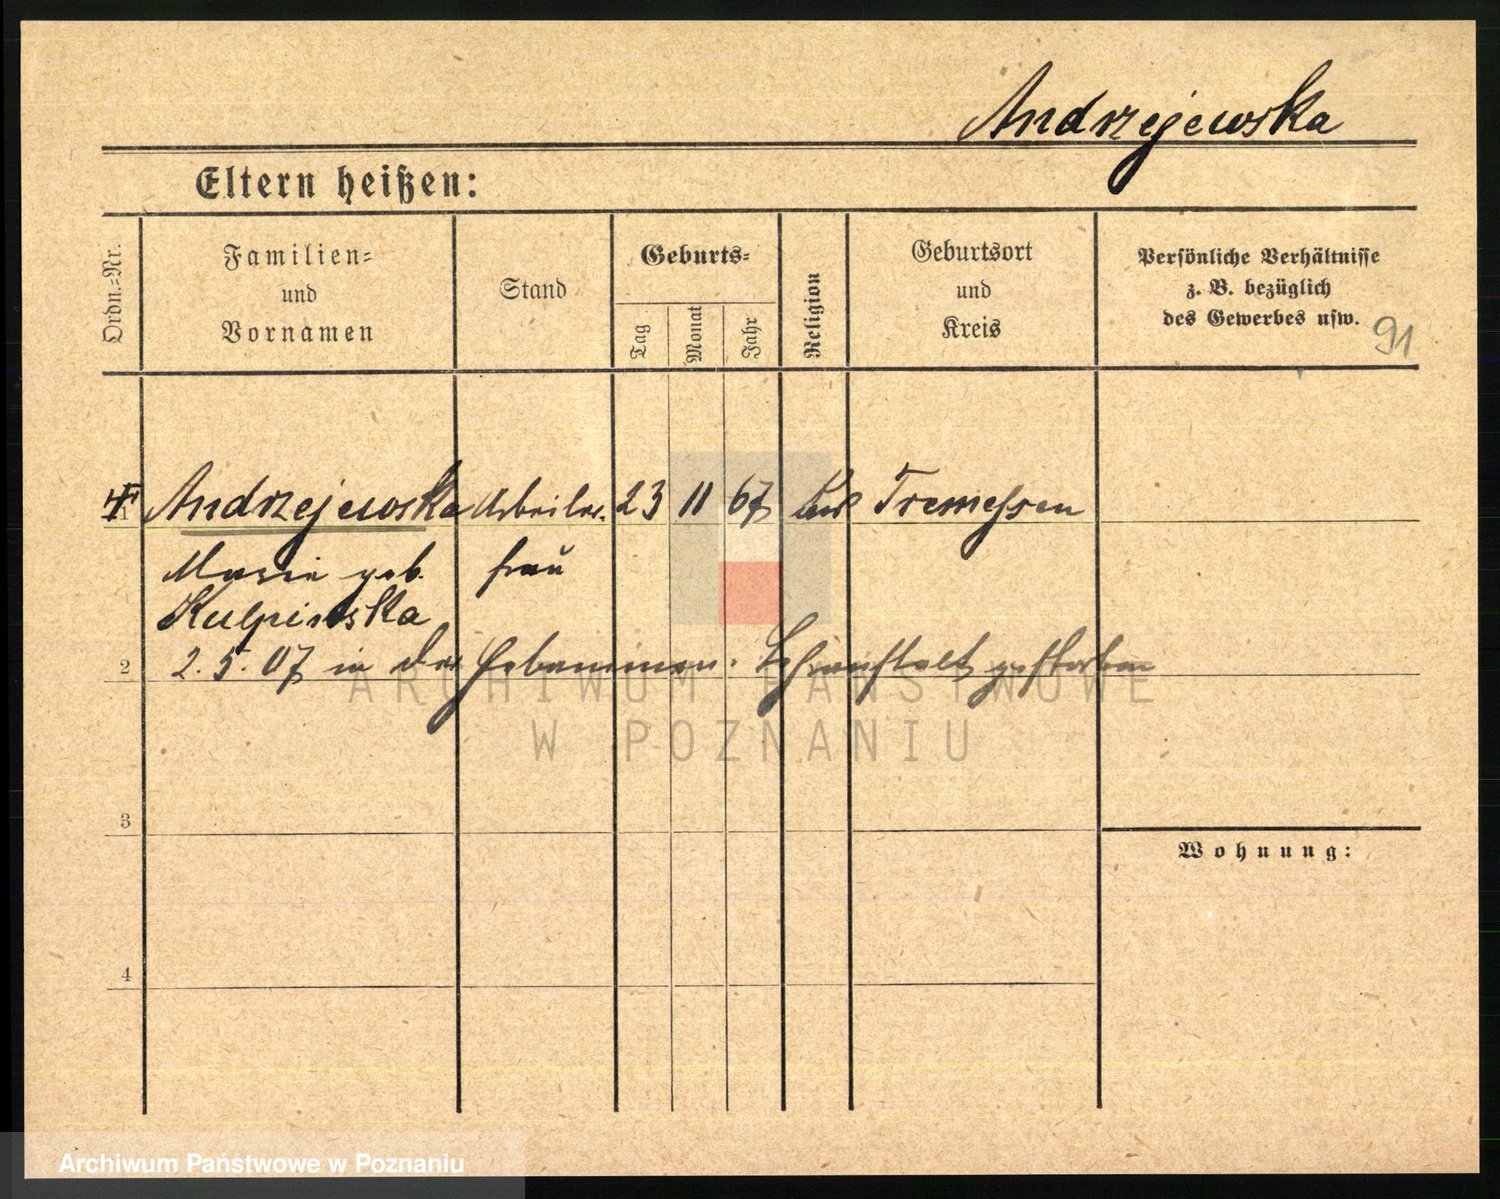 Andrzejewska
Eltern heißen:
Ordn.-Nr.
Familien-
und
Vornamen
Stand
Geburts-
Tag
Monat
Jahr
Religion
Geburtsort
und
Kreis
Persönliche Verhältnisse
z. B. bezüglich
des Gewerbes usw.
91
1 Andrzejewska Arbeiter- 23 11 67 Tremessen
Marie geb. frau
Kulpinska
2 2. 5. 07 in der Hebammen-Lehranstalt gestorben
ARCHIWUM PAŃSTWOWE
W POZNANIU
3
Wohnung:
4
Archiwum Państwowe w Poznaniu